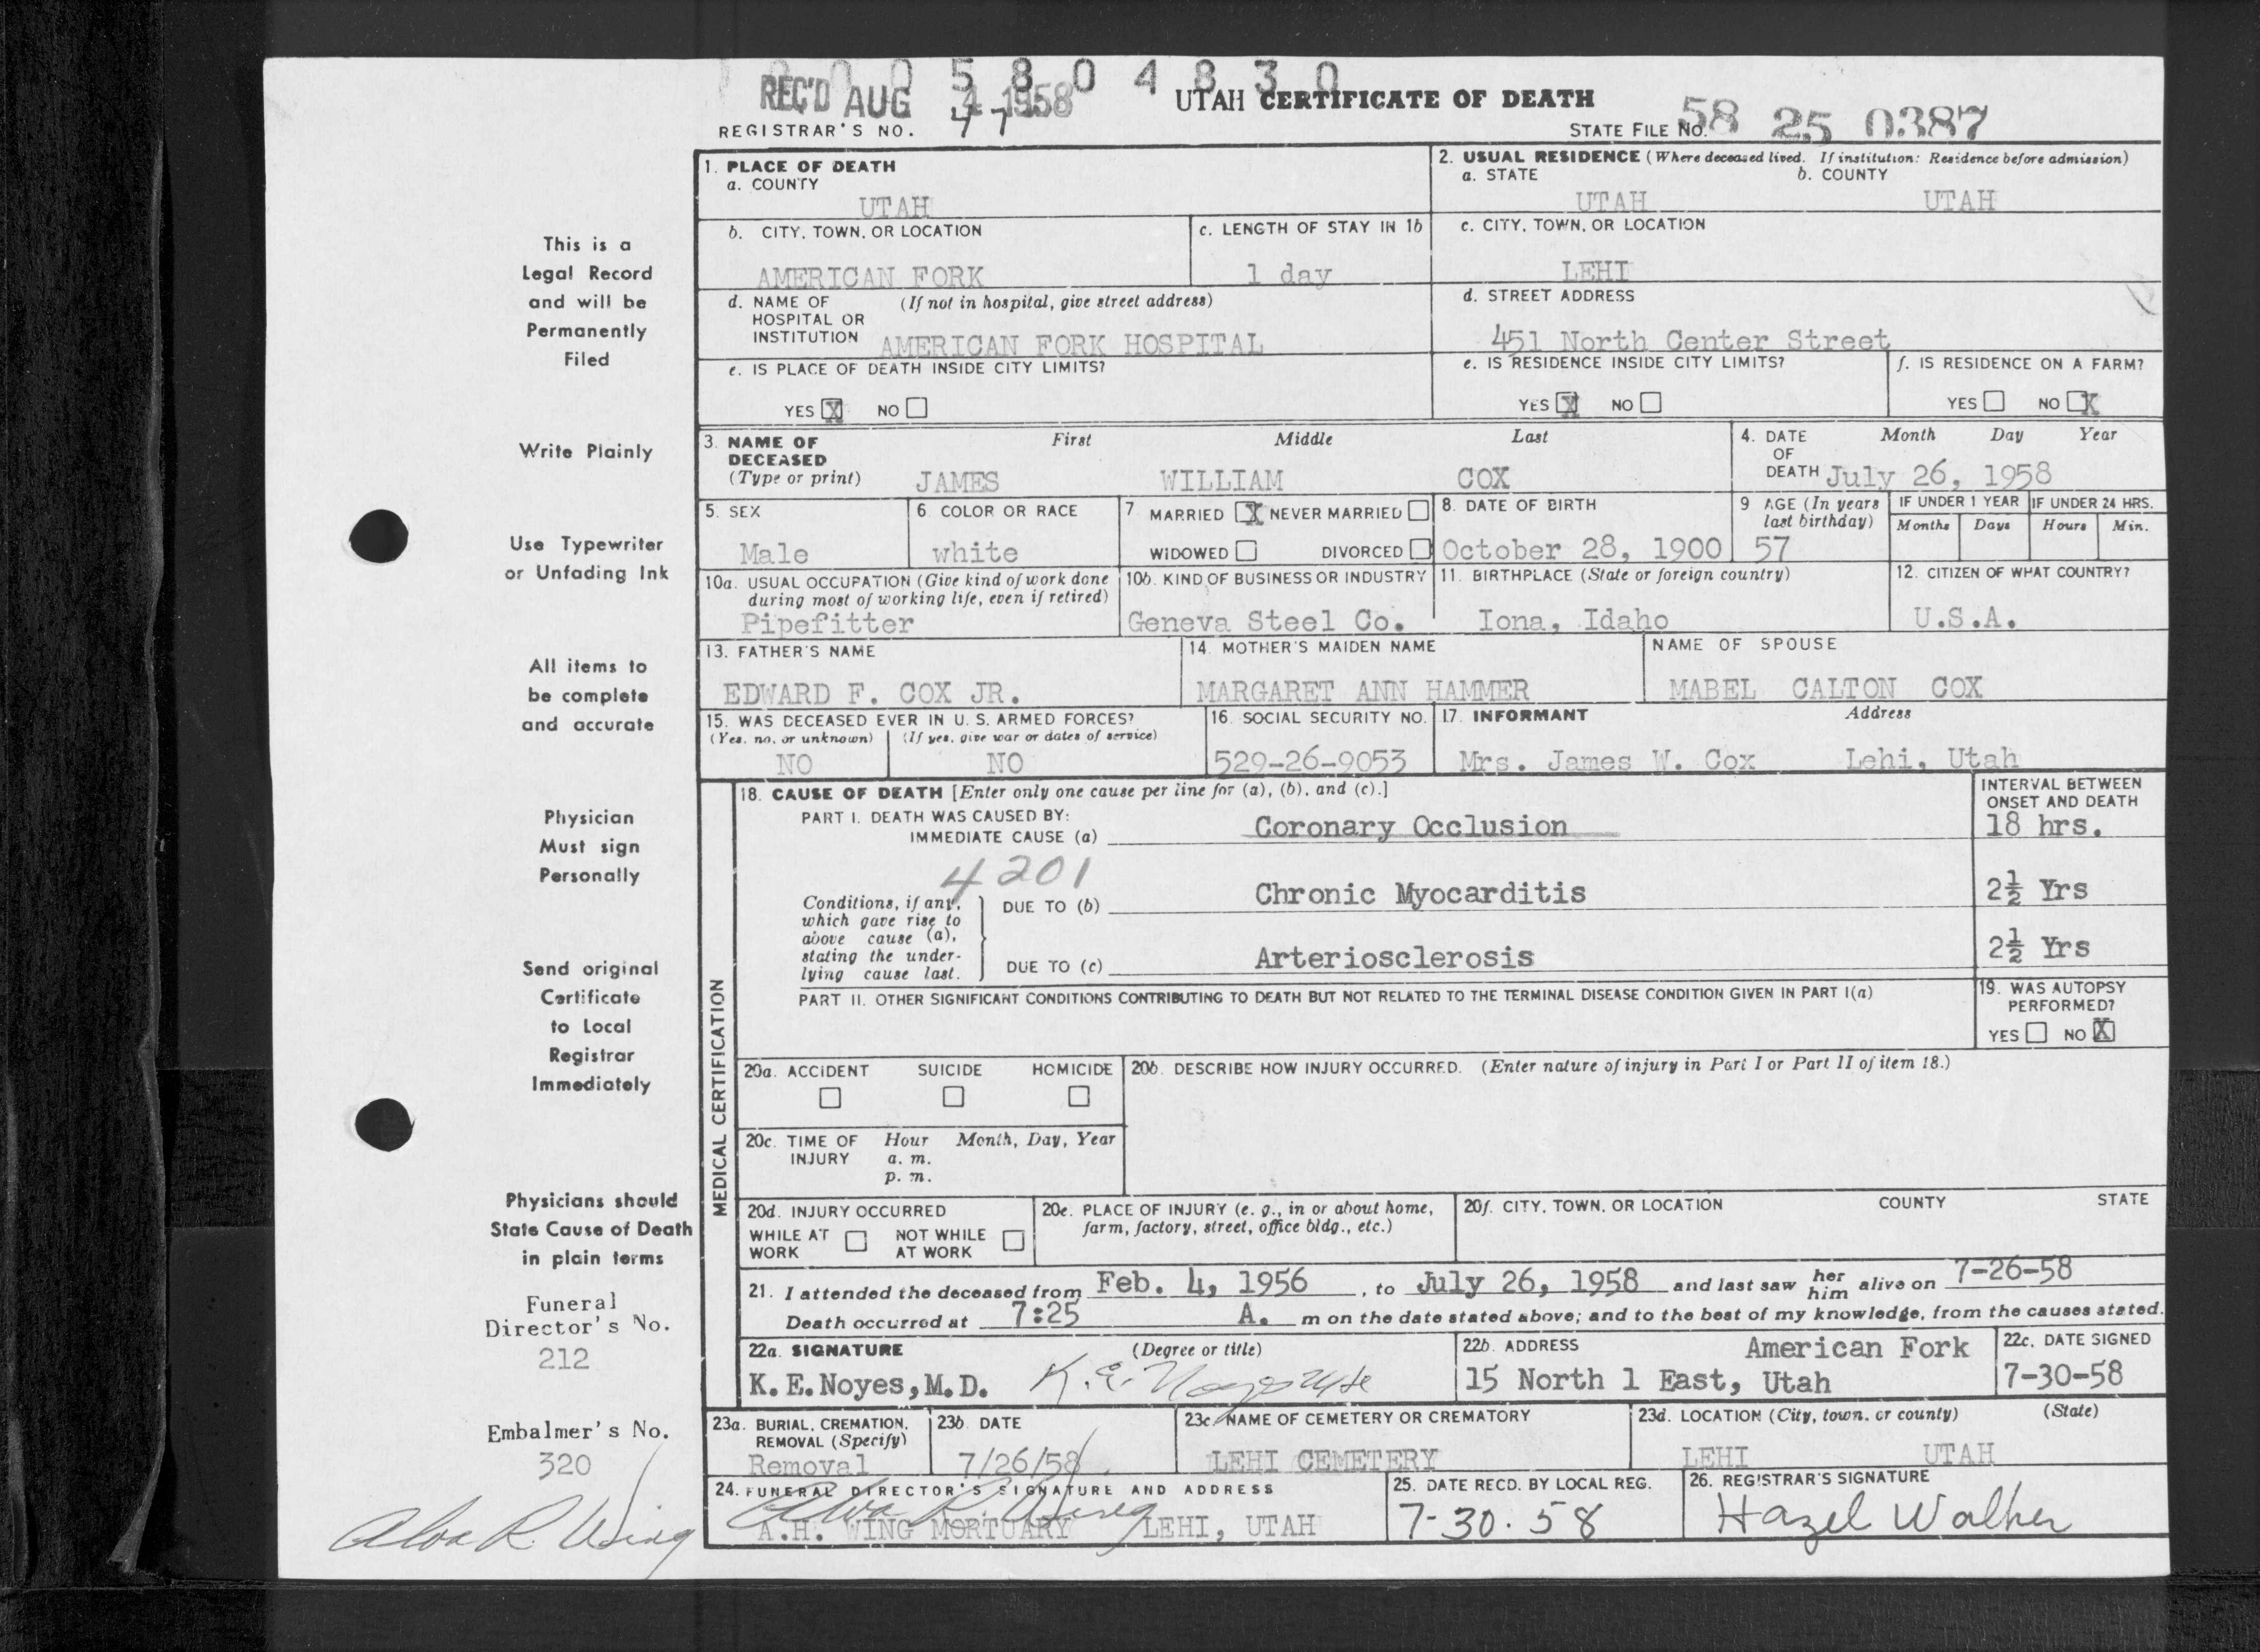 1 0 0 5 8 0 4 8 3 0
REC'D AUG 4 1958 UTAH CERTIFICATE OF DEATH
REGISTRAR'S NO. 77 STATE FILE No. 58 25 0387
1. PLACE OF DEATH
a. COUNTY
UTAH
2. USUAL RESIDENCE (Where deceased lived. If institution: Residence before admission)
a. STATE b. COUNTY
UTAH UTAH
b. CITY, TOWN, OR LOCATION c. LENGTH OF STAY IN 1b
AMERICAN FORK 1 day
c. CITY, TOWN, OR LOCATION
LEHI
d. NAME OF (If not in hospital, give street address)
HOSPITAL OR
INSTITUTION AMERICAN FORK HOSPITAL
d. STREET ADDRESS
451 North Center Street
e. IS PLACE OF DEATH INSIDE CITY LIMITS?
YES X NO
e. IS RESIDENCE INSIDE CITY LIMITS?
YES X NO
f. IS RESIDENCE ON A FARM?
YES NO X
3. NAME OF First Middle Last
DECEASED
(Type or print) JAMES WILLIAM COX
4. DATE Month Day Year
OF
DEATH July 26, 1958
5. SEX
Male
6. COLOR OR RACE
white
7. MARRIED X NEVER MARRIED
WIDOWED DIVORCED
8. DATE OF BIRTH
October 28, 1900
9 AGE (In years
last birthday)
57
IF UNDER 1 YEAR
Months Days
IF UNDER 24 HRS.
Hours Min.
10a. USUAL OCCUPATION (Give kind of work done
during most of working life, even if retired)
Pipefitter
10b. KIND OF BUSINESS OR INDUSTRY
Geneva Steel Co.
11. BIRTHPLACE (State or foreign country)
Iona, Idaho
12. CITIZEN OF WHAT COUNTRY?
U.S.A.
13. FATHER'S NAME
EDWARD F. COX JR.
14. MOTHER'S MAIDEN NAME
MARGARET ANN HAMMER
NAME OF SPOUSE
MABEL CALTON COX
15. WAS DECEASED EVER IN U. S. ARMED FORCES?
(Yes, no, or unknown) (If yes, give war or dates of service)
NO NO
16. SOCIAL SECURITY NO.
529-26-9053
17. INFORMANT Address
Mrs. James W. Cox Lehi, Utah
MEDICAL CERTIFICATION
18. CAUSE OF DEATH [Enter only one cause per line for (a), (b), and (c).]
PART I. DEATH WAS CAUSED BY:
IMMEDIATE CAUSE (a) Coronary Occlusion
INTERVAL BETWEEN
ONSET AND DEATH
18 hrs.
4201
Conditions, if any,
which gave rise to
above cause (a),
stating the under-
lying cause last.
DUE TO (b) Chronic Myocarditis 2½ Yrs
DUE TO (c) Arteriosclerosis 2½ Yrs
PART II. OTHER SIGNIFICANT CONDITIONS CONTRIBUTING TO DEATH BUT NOT RELATED TO THE TERMINAL DISEASE CONDITION GIVEN IN PART I(a)
19. WAS AUTOPSY
PERFORMED?
YES NO X
20a. ACCIDENT SUICIDE HOMICIDE
20b. DESCRIBE HOW INJURY OCCURRED. (Enter nature of injury in Part I or Part II of item 18.)
20c. TIME OF Hour Month, Day, Year
INJURY a. m.
p. m.
20d. INJURY OCCURRED
WHILE AT NOT WHILE
WORK AT WORK
20e. PLACE OF INJURY (e. g., in or about home,
farm, factory, street, office bldg., etc.)
20f. CITY, TOWN, OR LOCATION COUNTY STATE
21. I attended the deceased from Feb. 4, 1956, to July 26, 1958 and last saw her him alive on 7-26-58
Death occurred at 7:25 A. m on the date stated above; and to the best of my knowledge, from the causes stated.
22a. SIGNATURE (Degree or title)
K.E.Noyes,M.D. K.E. Noyes
22b. ADDRESS American Fork
15 North 1 East, Utah
22c. DATE SIGNED
7-30-58
23a. BURIAL, CREMATION,
REMOVAL (Specify)
Removal
23b. DATE
7/26/58
23c. NAME OF CEMETERY OR CREMATORY
LEHI CEMETERY
23d. LOCATION (City, town, or county) (State)
LEHI UTAH
24. FUNERAL DIRECTOR'S SIGNATURE AND ADDRESS
Alva R. Wing
A.H. WING MORTUARY LEHI, UTAH
25. DATE RECD. BY LOCAL REG.
7-30-58
26. REGISTRAR'S SIGNATURE
Hazel Walker
This is a
Legal Record
and will be
Permanently
Filed
Write Plainly
Use Typewriter
or Unfading Ink
All items to
be complete
and accurate
Physician
Must sign
Personally
Send original
Certificate
to Local
Registrar
Immediately
Physicians should
State Cause of Death
in plain terms
Funeral
Director's No.
212
Embalmer's No.
320
Alva R. Wing